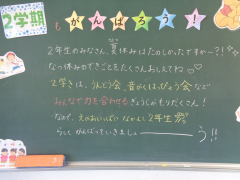 2学期
もがんばろう!
2年生のみなさん、夏休みはたのしかったですか〜?!
なつ休みのできごとをたくさんおしえてね♡
2学きは、うんどう会、音がくはっぴょう会など
みんなで力を合わせるぎょうじがもりだくさん!
なので、なかよし2年生
らしく がんばっていきましょーう!!